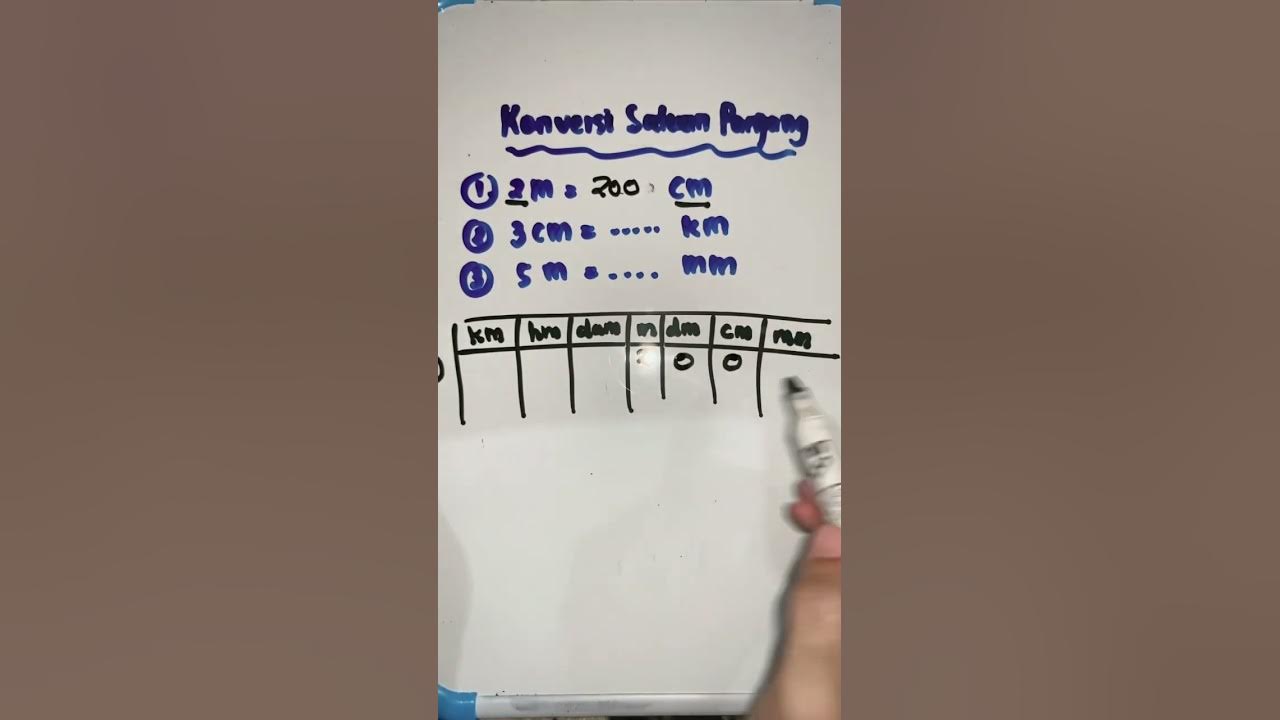 Konversi Satuan Panjang
① 2m = 200 cm
② 3 cm = ..... km
③ 5 m = .... mm
km hm dam m dm cm mm
2 0 0